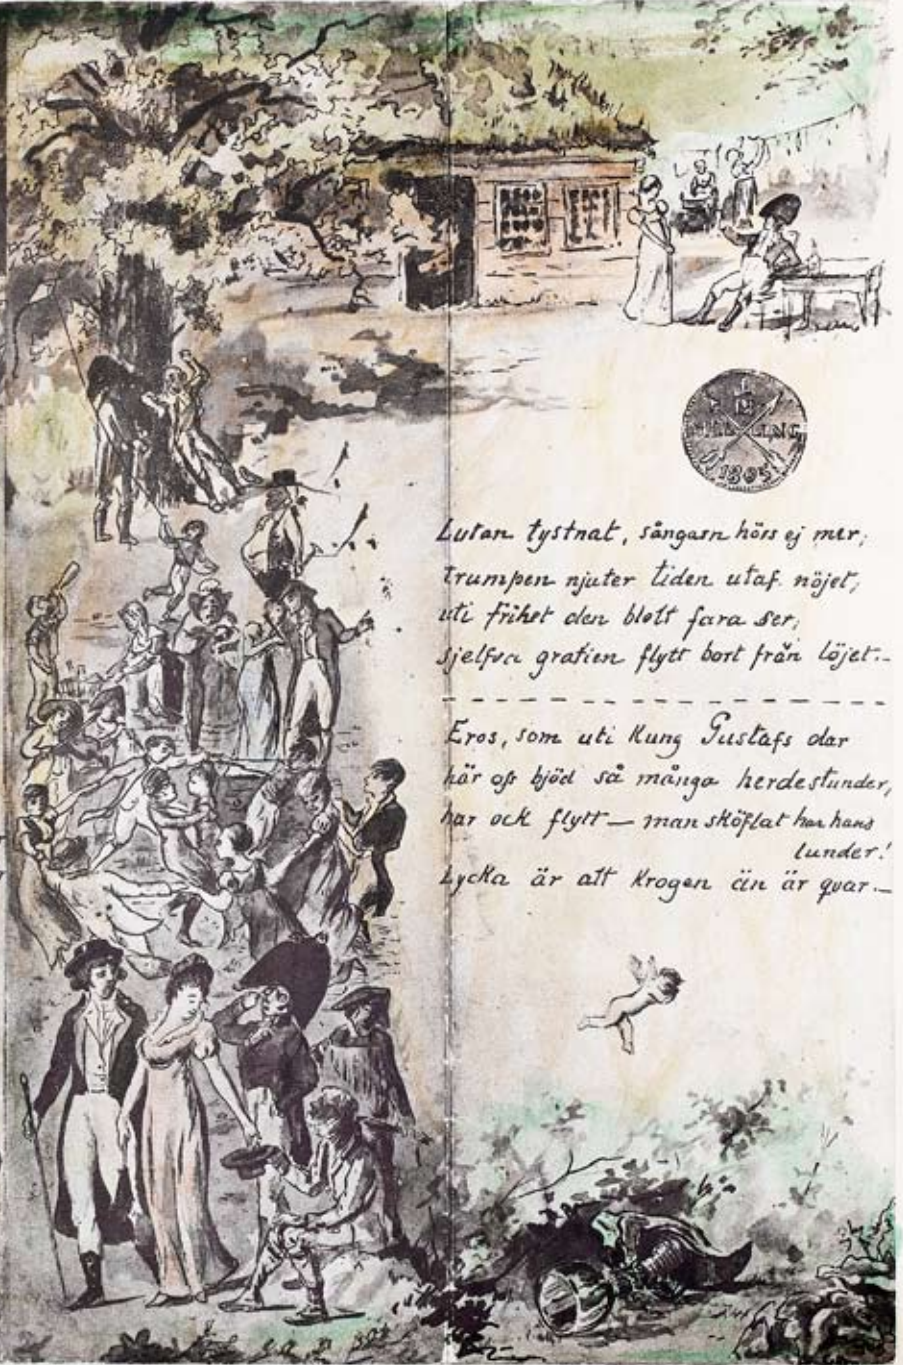 SKILLING
1805
Lutan tystnat, sångarn hörs ej mer;
trumpen njuter tiden utaf nöjet,
uti frihet den blott fara ser;
sjelfva gratien flytt bort från löjet.—
Eros, som uti Kung Gustafs dar
här oss bjöd så många herdestunder,
har ock flytt — man sköflat har hans
lunder!
Lycka är att Krogen än är qvar.—